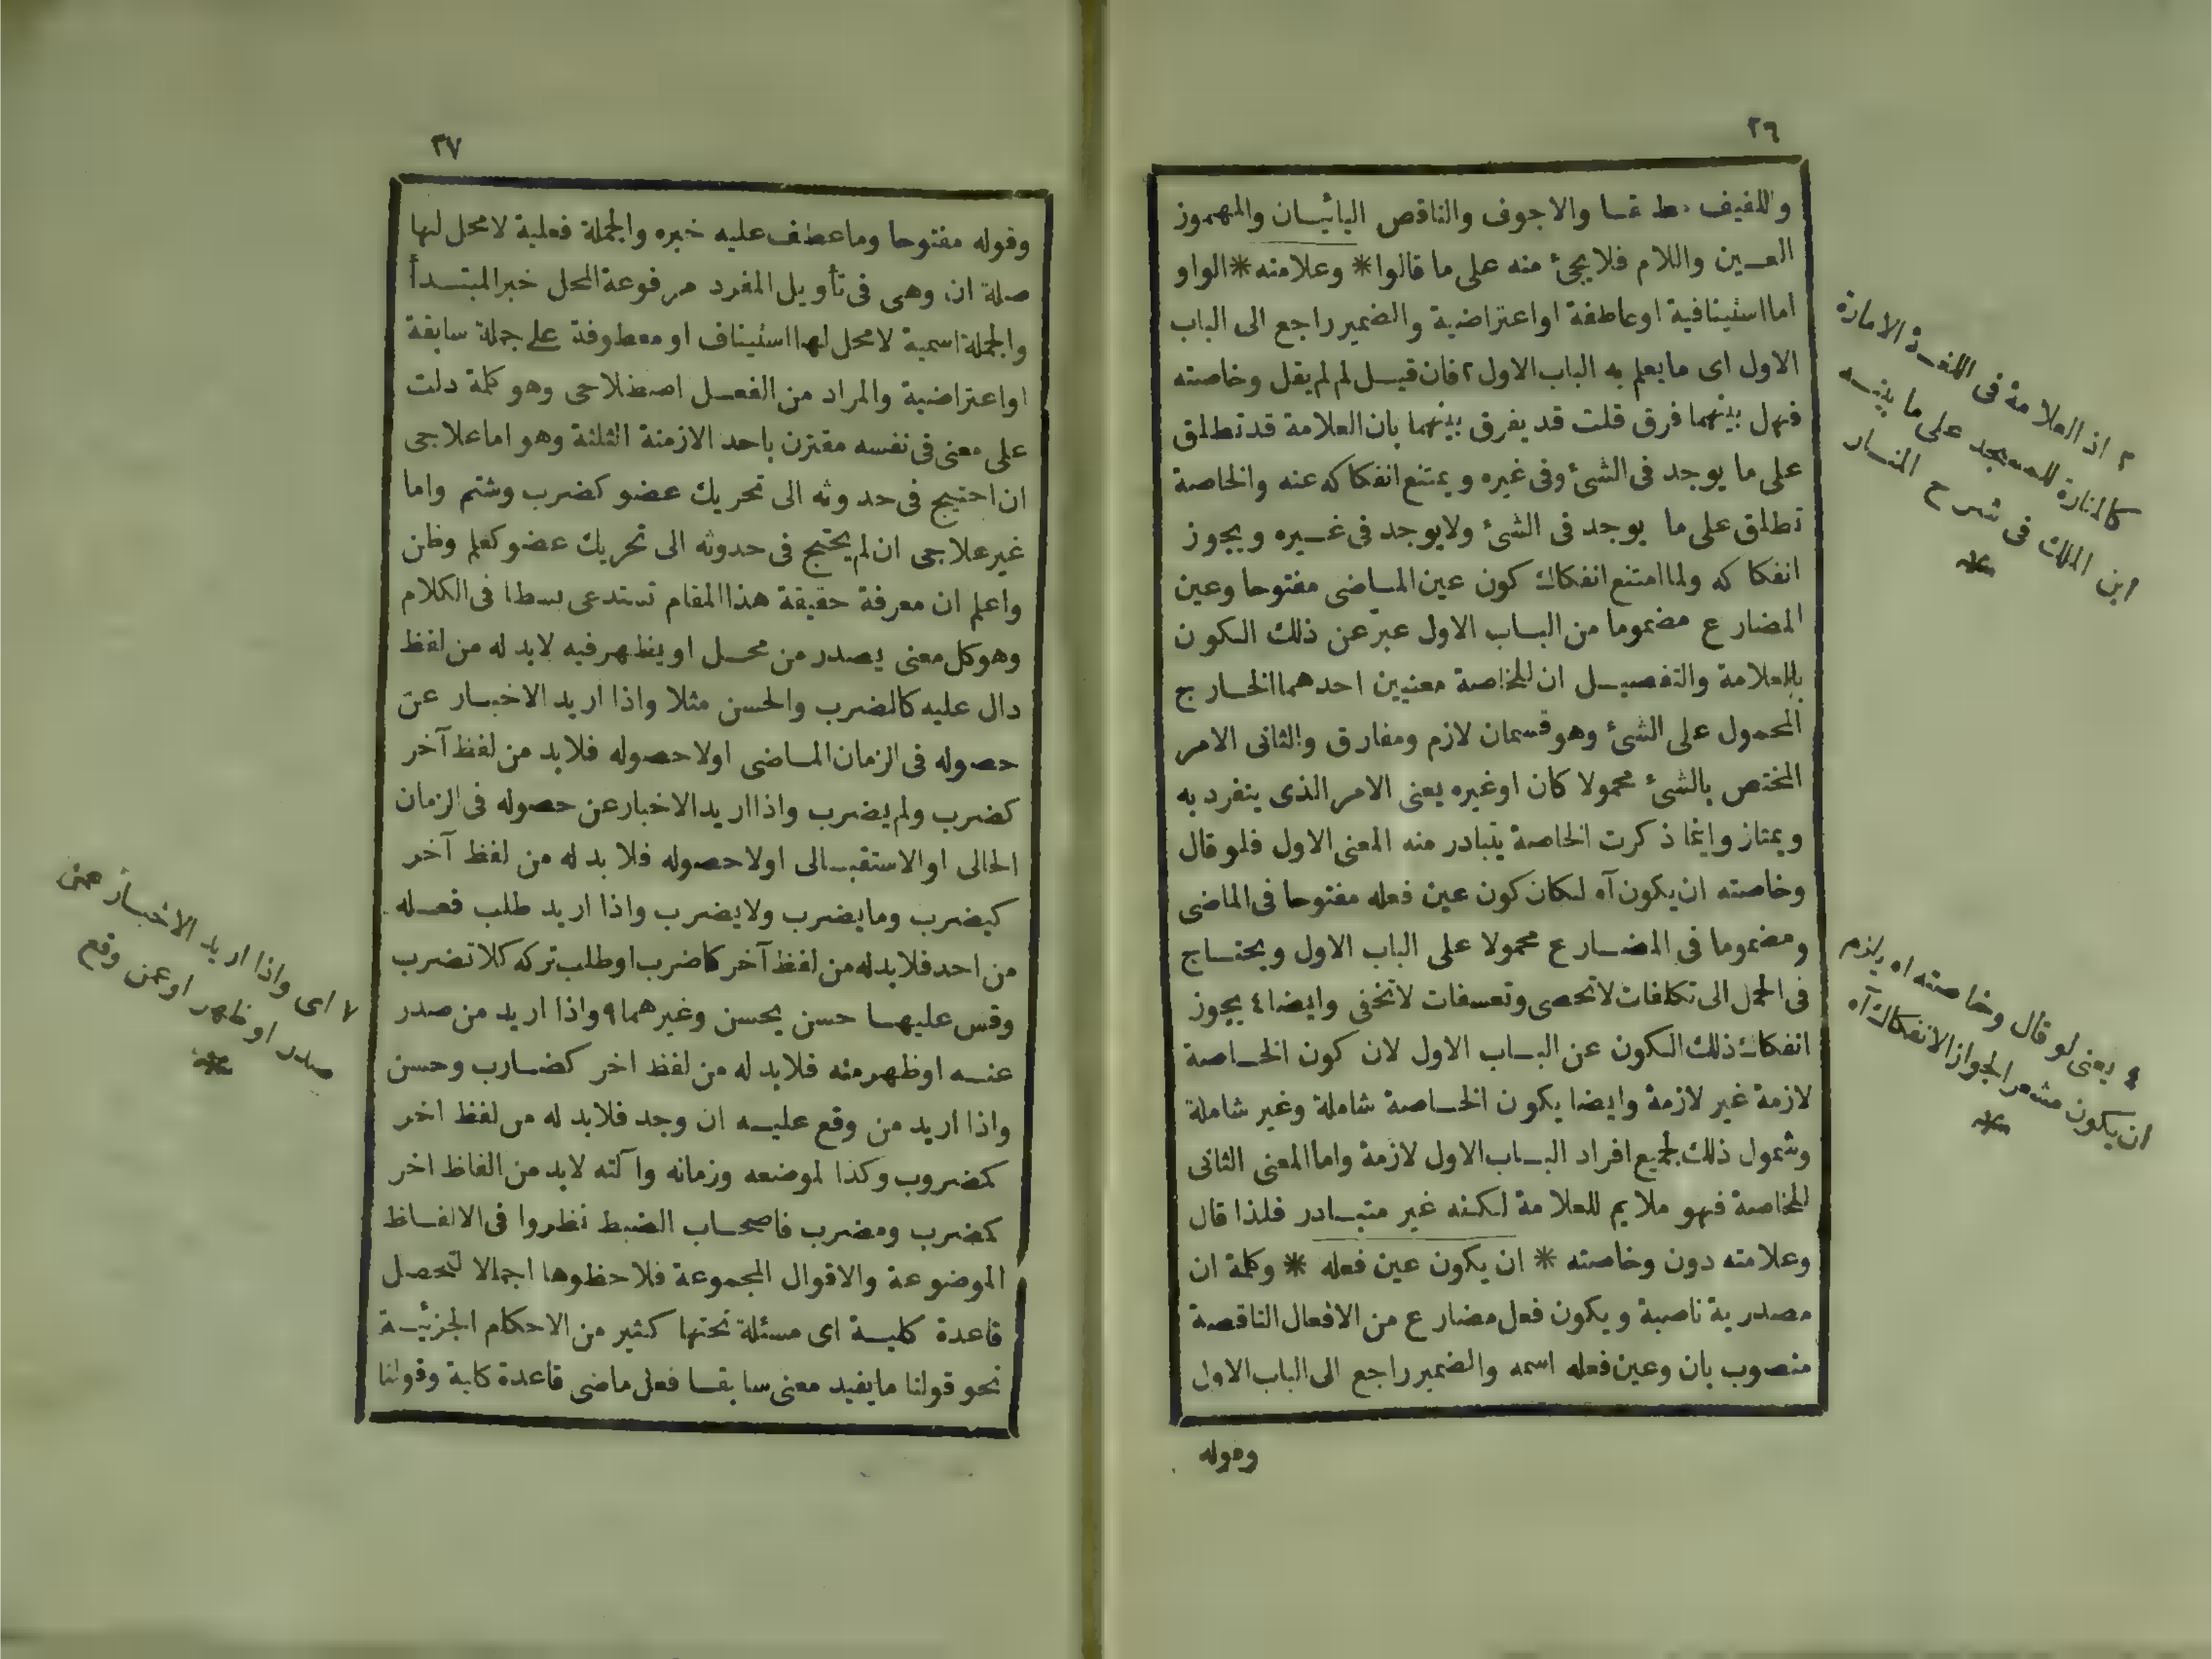 ٢٦
واللفيف مطلقا والاجوف والناقص اليائيان والمهموز
العين واللام فلا يجئ منه على ما قالوا * وعلامته * الواو
اما استينافية او عاطفة او اعتراضية والضمير راجع الى الباب
الاول اى ما يعلم به الباب الاول ٢ فان قيل لم لم يقل وخاصته
فهل بينهما فرق قلت قد يفرق بينهما بان العلامة قد تطلق
على ما يوجد فى الشئ وفى غيره ويمتنع انفكاكه عنه والخاصة
تطلق على ما يوجد فى الشئ ولا يوجد فى غيره ويجوز
انفكاكه ولما امتنع انفكاك كون عين الماضى مفتوحا وعين
المضارع مضموما من الباب الاول عبر عن ذلك الكون
بالعلامة والتفصيل ان للخاصة معنيين احدهما الخارج
المحمول على الشئ وهو قسمان لازم ومفارق والثانى الامر
المختص بالشئ محمولا كان اوغيره يعنى الامر الذى ينفرد به
ويمتاز وانما ذكرت الخاصة يتبادر منه المعنى الاول فلو قال
وخاصته ان يكون آه لكان كون عين فعله مفتوحا فى الماضى
ومضموما فى المضارع محمولا على الباب الاول ويحتاج
فى الحمل الى تكلفات لا تحصى وتعسفات لا تخفى وايضا ٤ يجوز
انفكاك ذلك الكون عن الباب الاول لان كون الخاصة
لازمة غير لازمة وايضا يكون الخاصة شاملة وغير شاملة
وشمول ذلك لجميع افراد الباب الاول لازمة واما المعنى الثانى
للخاصة فهو ملايم للعلامة لكنه غير متبادر فلذا قال
وعلامته دون وخاصته * ان يكون عين فعله * وكلمة ان
مصدرية ناصبة ويكون فعل مضارع من الافعال الناقصة
منصوب بان وعين فعله اسمه والضمير راجع الى الباب الاول
وقوله
٢ اذ العلامة فى اللغة الامارة
كالمنارة للمسجد على ما بينه
ابن الملك فى شرح المنار
*
٤ يعنى لو قال وخاصته اه يلزم
ان يكون مشعرا لجواز الانفكاك آه
*
٢٧
وقوله مفتوحا وما عطف عليه خبره والجملة فعلية لا محل لها
صلة ان وهى فى تأويل المفرد مرفوعة المحل خبر المبتدأ
والجملة اسمية لا محل لها استيناف او معطوفة على جملة سابقة
او اعتراضية والمراد من الفعل اصطلاحى وهو كلمة دلت
على معنى فى نفسه مقترن باحد الازمنة الثلثة وهو اما علاجى
ان احتيج فى حدوثه الى تحريك عضو كضرب وشتم واما
غير علاجى ان لم يحتج فى حدوثه الى تحريك عضو كعلم وظن
واعلم ان معرفة حقيقة هذا المقام تستدعى بسطا فى الكلام
وهو كل معنى يصدر من محل او يظهر فيه لابد له من لفظ
دال عليه كالضرب والحسن مثلا واذا اريد الاخبار عن
حصوله فى الزمان الماضى اولا حصوله فلابد من لفظ آخر
كضرب ولم يضرب واذا اريد الاخبار عن حصوله فى الزمان
الحالى او الاستقبالى اولا حصوله فلابد له من لفظ آخر
كيضرب وما يضرب ولا يضرب واذا اريد طلب فعله
من احد فلابد له من لفظ آخر كاضرب او طلب تركه كلا تضرب
وقس عليهما حسن يحسن وغيرهما ٩ واذا اريد من صدر
عنه او ظهر منه فلابد له من لفظ اخر كضارب وحسن
واذا اريد من وقع عليه ان وجد فلابد له من لفظ اخر
كمضروب وكذا لموضعه وزمانه وآلته لابد من الفاظ اخر
كمضرب ومضرب فاصحاب الضبط نظروا فى الالفاظ
الموضوعة والاقوال المجموعة فلاحظوها اجمالا لتحصل
قاعدة كلية اى مسئلة تحتها كثير من الاحكام الجزئية
نحو قولنا ما يفيد معنى سابقا فعل ماضى قاعدة كلية وقولنا
٧ اى واذا اريد الاخبار عمن
صدر او ظهر او عمن وقع
*